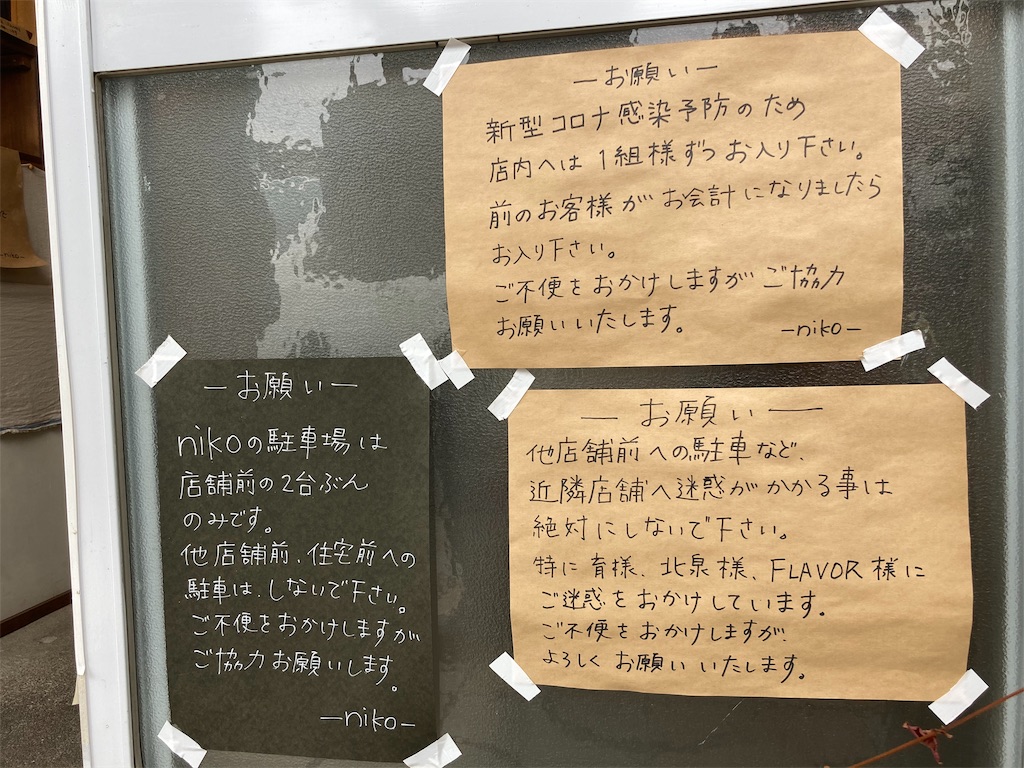 ーお願いー
新型コロナ感染予防のため
店内へは1組様ずつお入り下さい。
前のお客様がお会計になりましたら
お入り下さい。
ご不便をおかけしますがご協力
お願いいたします。
ーnikoー
ーお願いー
nikoの駐車場は
店舗前の2台ぶん
のみです。
他店舗前、住宅前への
駐車は、しないで下さい。
ご不便をおかけしますが
ご協力お願いします。
ーnikoー
ーお願いー
他店舗前への駐車など、
近隣店舗へ迷惑がかかる事は
絶対にしないで下さい。
特に育様、北泉様、FLAVOR様に
ご迷惑をおかけしています。
ご不便をおかけしますが、
よろしくお願いいたします。